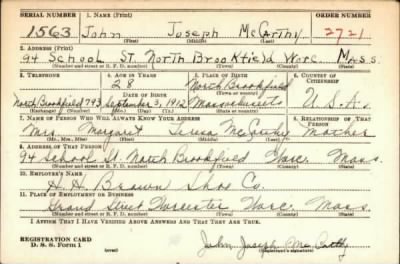 SERIAL NUMBER 1. NAME (Print) ORDER NUMBER
1563 John Joseph McCarthy 2721
(First) (Middle) (Last)
2. ADDRESS (Print)
94 School St. North Brookfield Worc. Mass.
(Number and street or R. F. D. number) (Town) (County) (State)
3. TELEPHONE 4. AGE IN YEARS 5. PLACE OF BIRTH 6. COUNTRY OF CITIZENSHIP
28 North Brookfield
DATE OF BIRTH (Town or county)
North Brookfield 793 September 3, 1912 Massachusetts U.S.A.
(Exchange) (Number) (Mo.) (Day) (Yr.) (State or country)
7. NAME OF PERSON WHO WILL ALWAYS KNOW YOUR ADDRESS 8. RELATIONSHIP OF THAT PERSON
Mrs. Margaret Teresa McCarthy Mother
(Mr., Mrs., Miss) (First) (Middle) (Last)
9. ADDRESS OF THAT PERSON
94 School St. North Brookfield Worc. Mass.
(Number and street or R. F. D. number) (Town) (County) (State)
10. EMPLOYER'S NAME
H. H. Brown Shoe Co.
11. PLACE OF EMPLOYMENT OR BUSINESS
Grand Street Worcester Worc. Mass.
(Number and street or R. F. D. number) (Town) (County) (State)
I AFFIRM THAT I HAVE VERIFIED ABOVE ANSWERS AND THAT THEY ARE TRUE.
REGISTRATION CARD
D. S. S. FORM 1 John Joseph McCarthy
(over) (Registrant's signature)